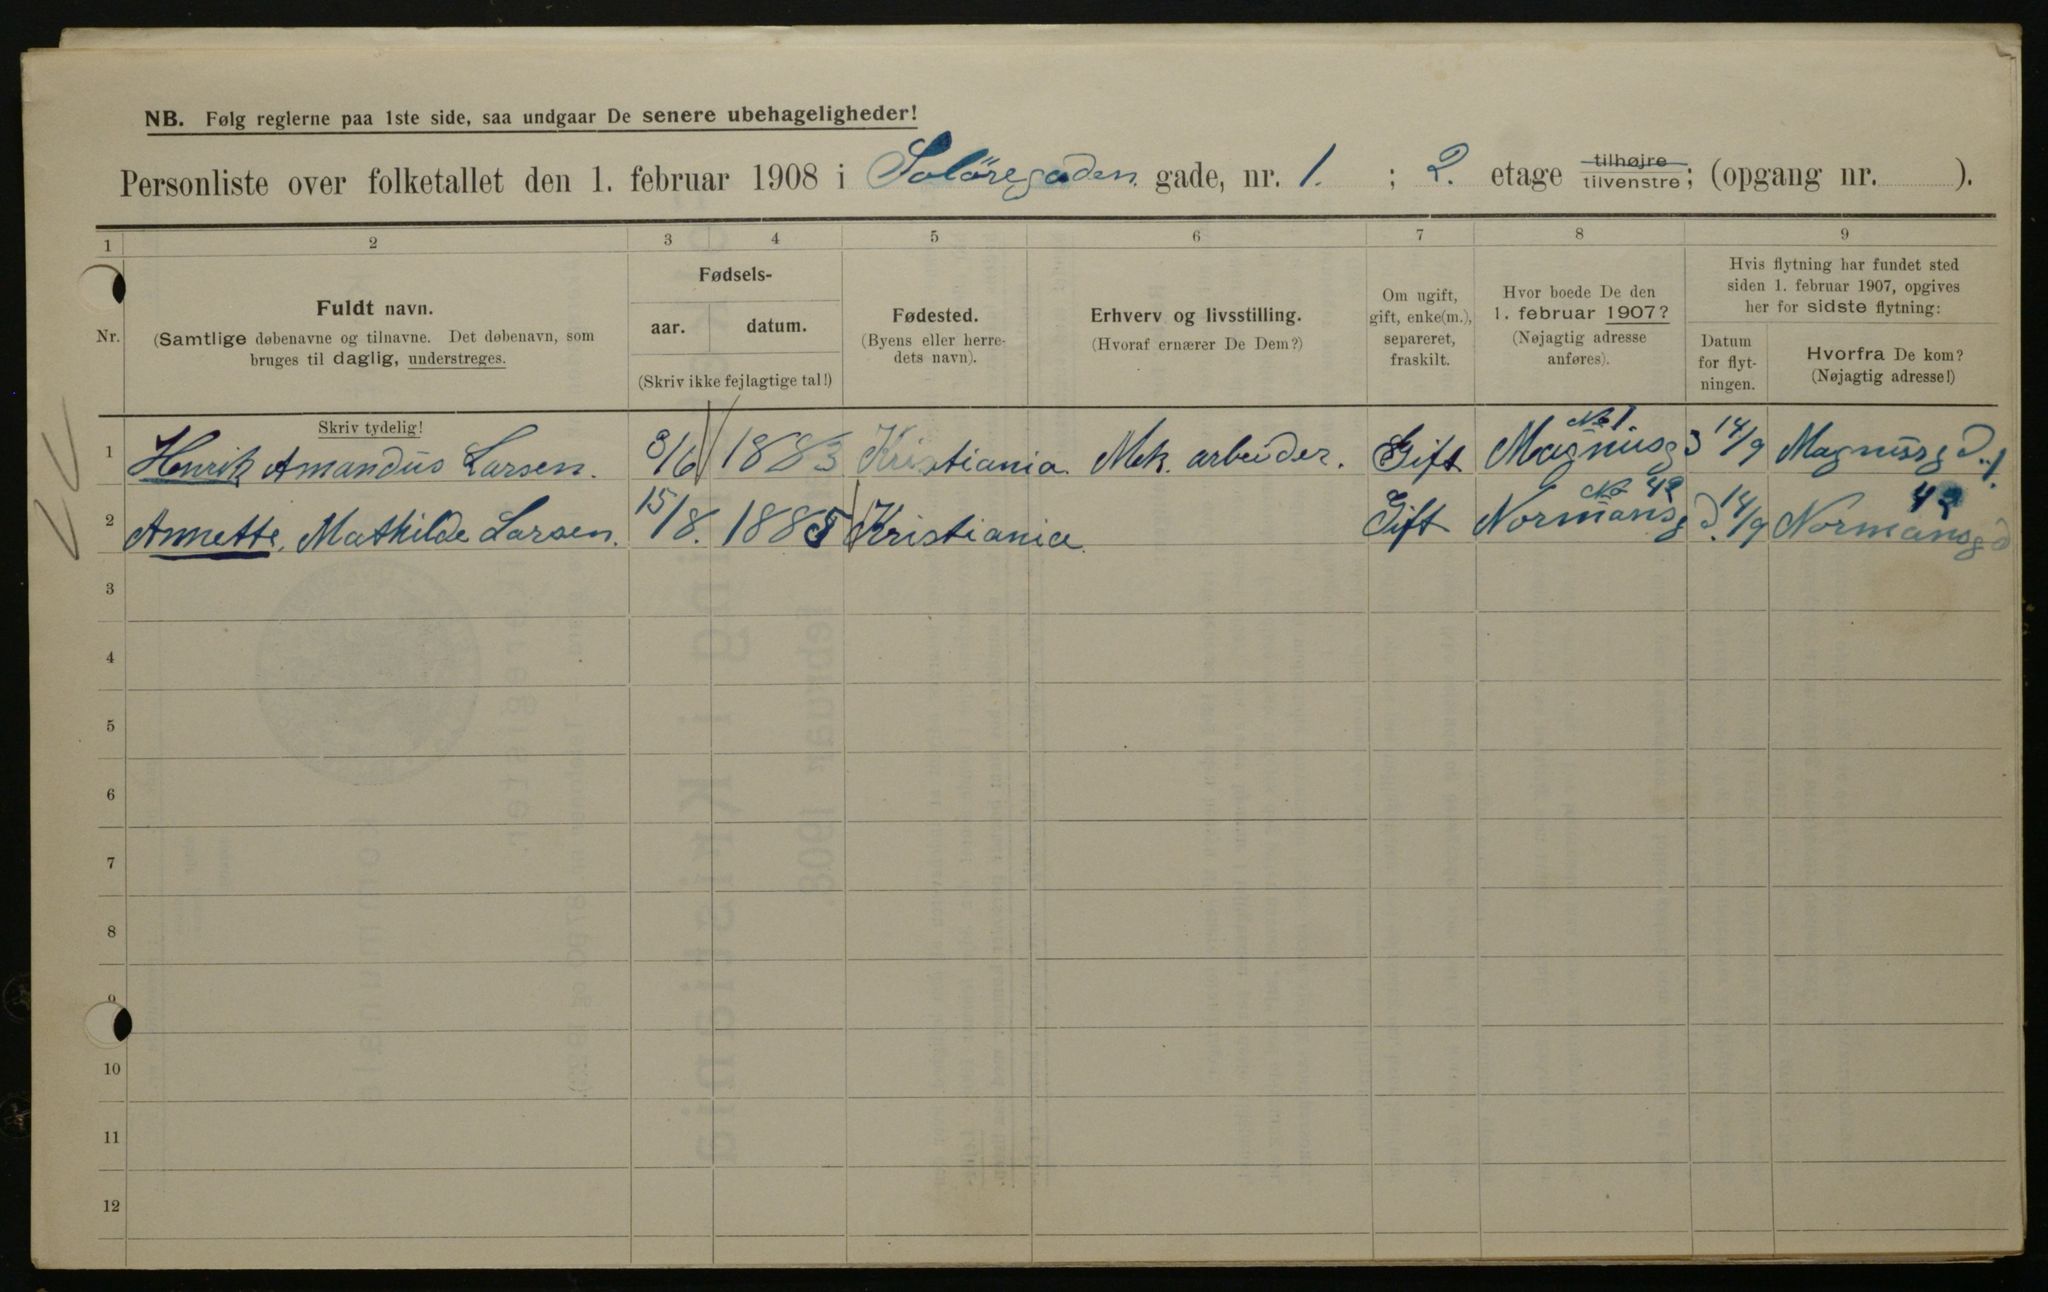 NB. Følg reglerne paa 1ste side, saa undgaar De senere ubehageligheder!
Personliste over folketallet den 1. februar 1908 i Soløregaden. gade, nr. 1. ; 2. etage tilhøjre tilvenstre; (opgang nr. ).
1 2 3 4 5 6 7 8 9
Nr.
Fuldt navn.
(Samtlige døbenavne og tilnavne. Det døbenavn, som
bruges til daglig, understreges.
Fødsels-
aar. datum.
(Skriv ikke fejlagtige tal!)
Fødested.
(Byens eller herre-
dets navn).
Erhverv og livsstilling.
(Hvoraf ernærer De Dem?)
Om ugift,
gift, enke(m.),
separeret,
fraskilt.
Hvor boede De den
1. februar 1907?
(Nøjagtig adresse
anføres).
Hvis flytning har fundet sted
siden 1. februar 1907, opgives
her for sidste flytning:
Datum
for flyt-
ningen.
Hvorfra De kom?
(Nøjagtig adresse!)
Skriv tydelig!
1 Henrik Amandus Larsen. 8/6 1883 Kristiania Mek. arbeider. Gift Magnusgd No 1. 14/9 Magnusgd. 1.
2 Annette Mathilde Larsen. 15/8. 1885 Kristiania Gift Normansgd. No 42 14/9 Normansgd 42
3
4
5
6
7
8
9
10
11
12